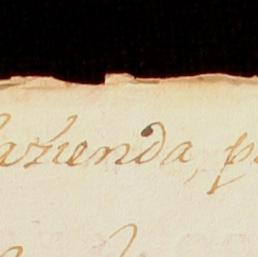 azienda, p